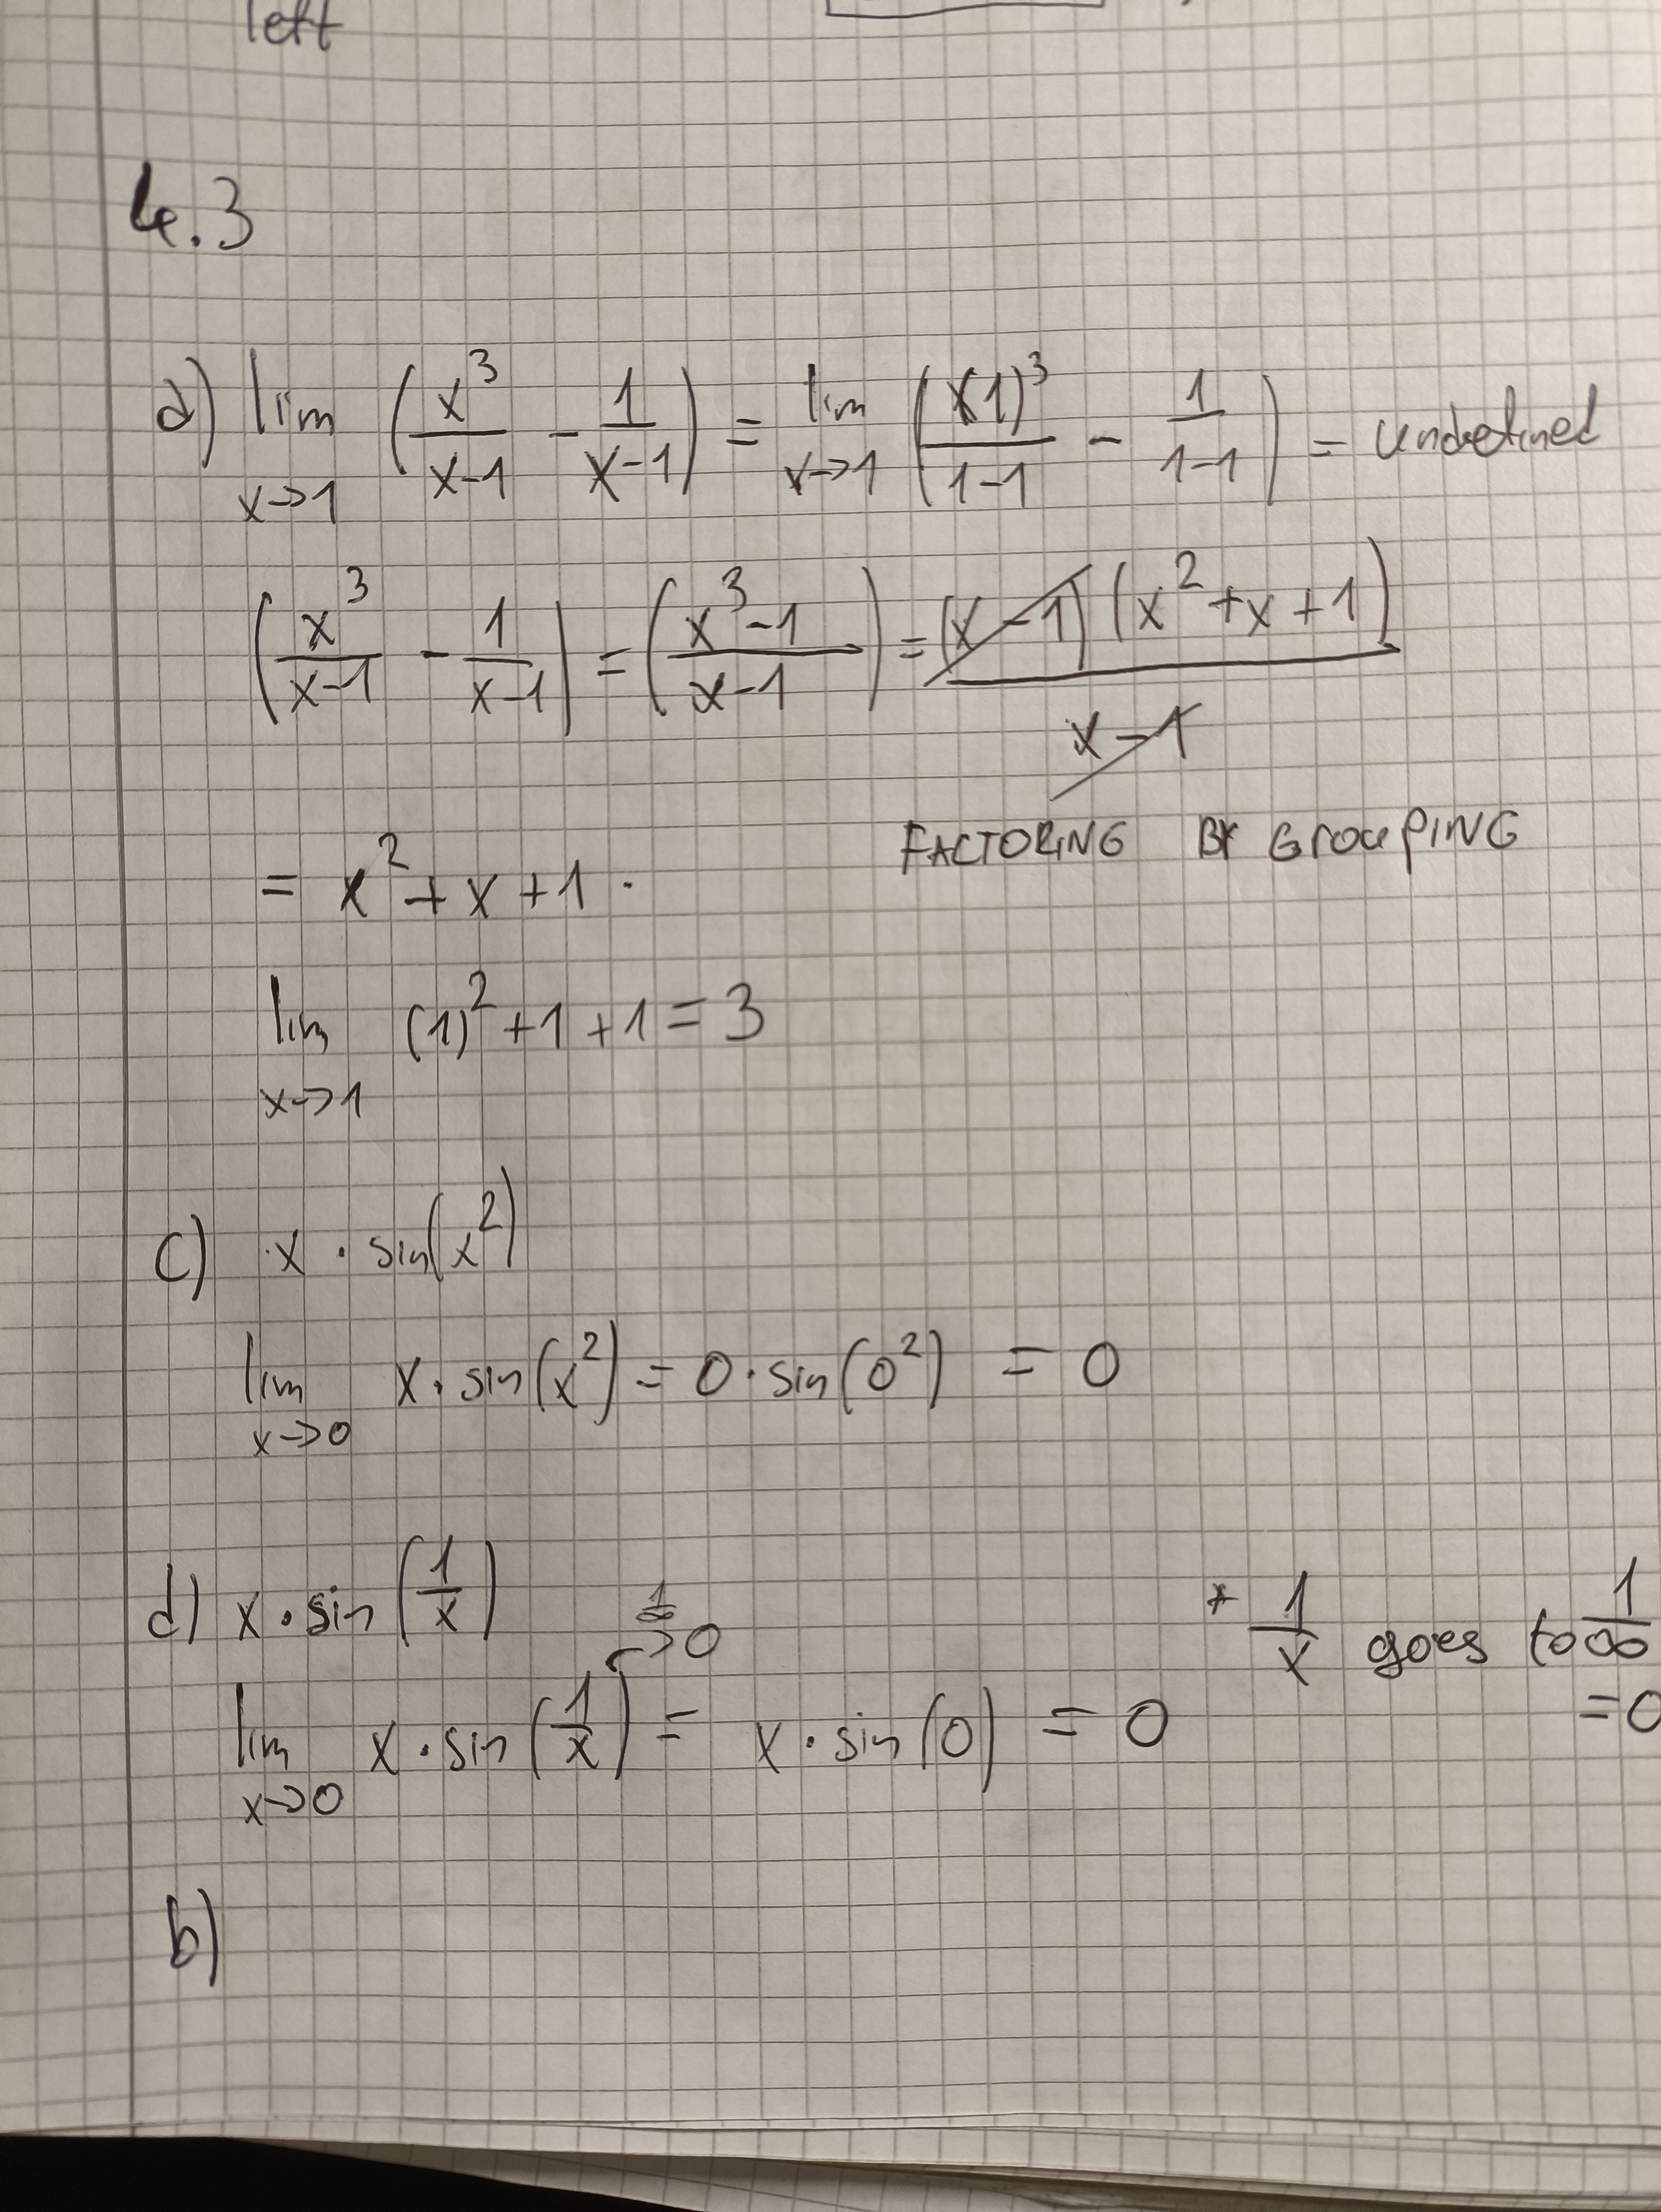 left
4.3
a) lim x→1 (x³/(x-1) - 1/(x-1)) = lim x→1 ((1)³/(1-1) - 1/(1-1)) = undefined
(x³/(x-1) - 1/(x-1)) = ((x³-1)/(x-1)) = (x-1)(x²+x+1)/(x-1)
FACTORING BY GrouPING
= x²+x+1.
lim x→1 (1)²+1+1=3
c) x · sin(x²)
lim x→0 x·sin(x²) = 0·sin(0²) = 0
d) x·sin(1/x)
1/∞ →0
* 1/x goes to 1/∞ =0
lim x→0 x·sin(1/x) = x·sin(0) = 0
b)